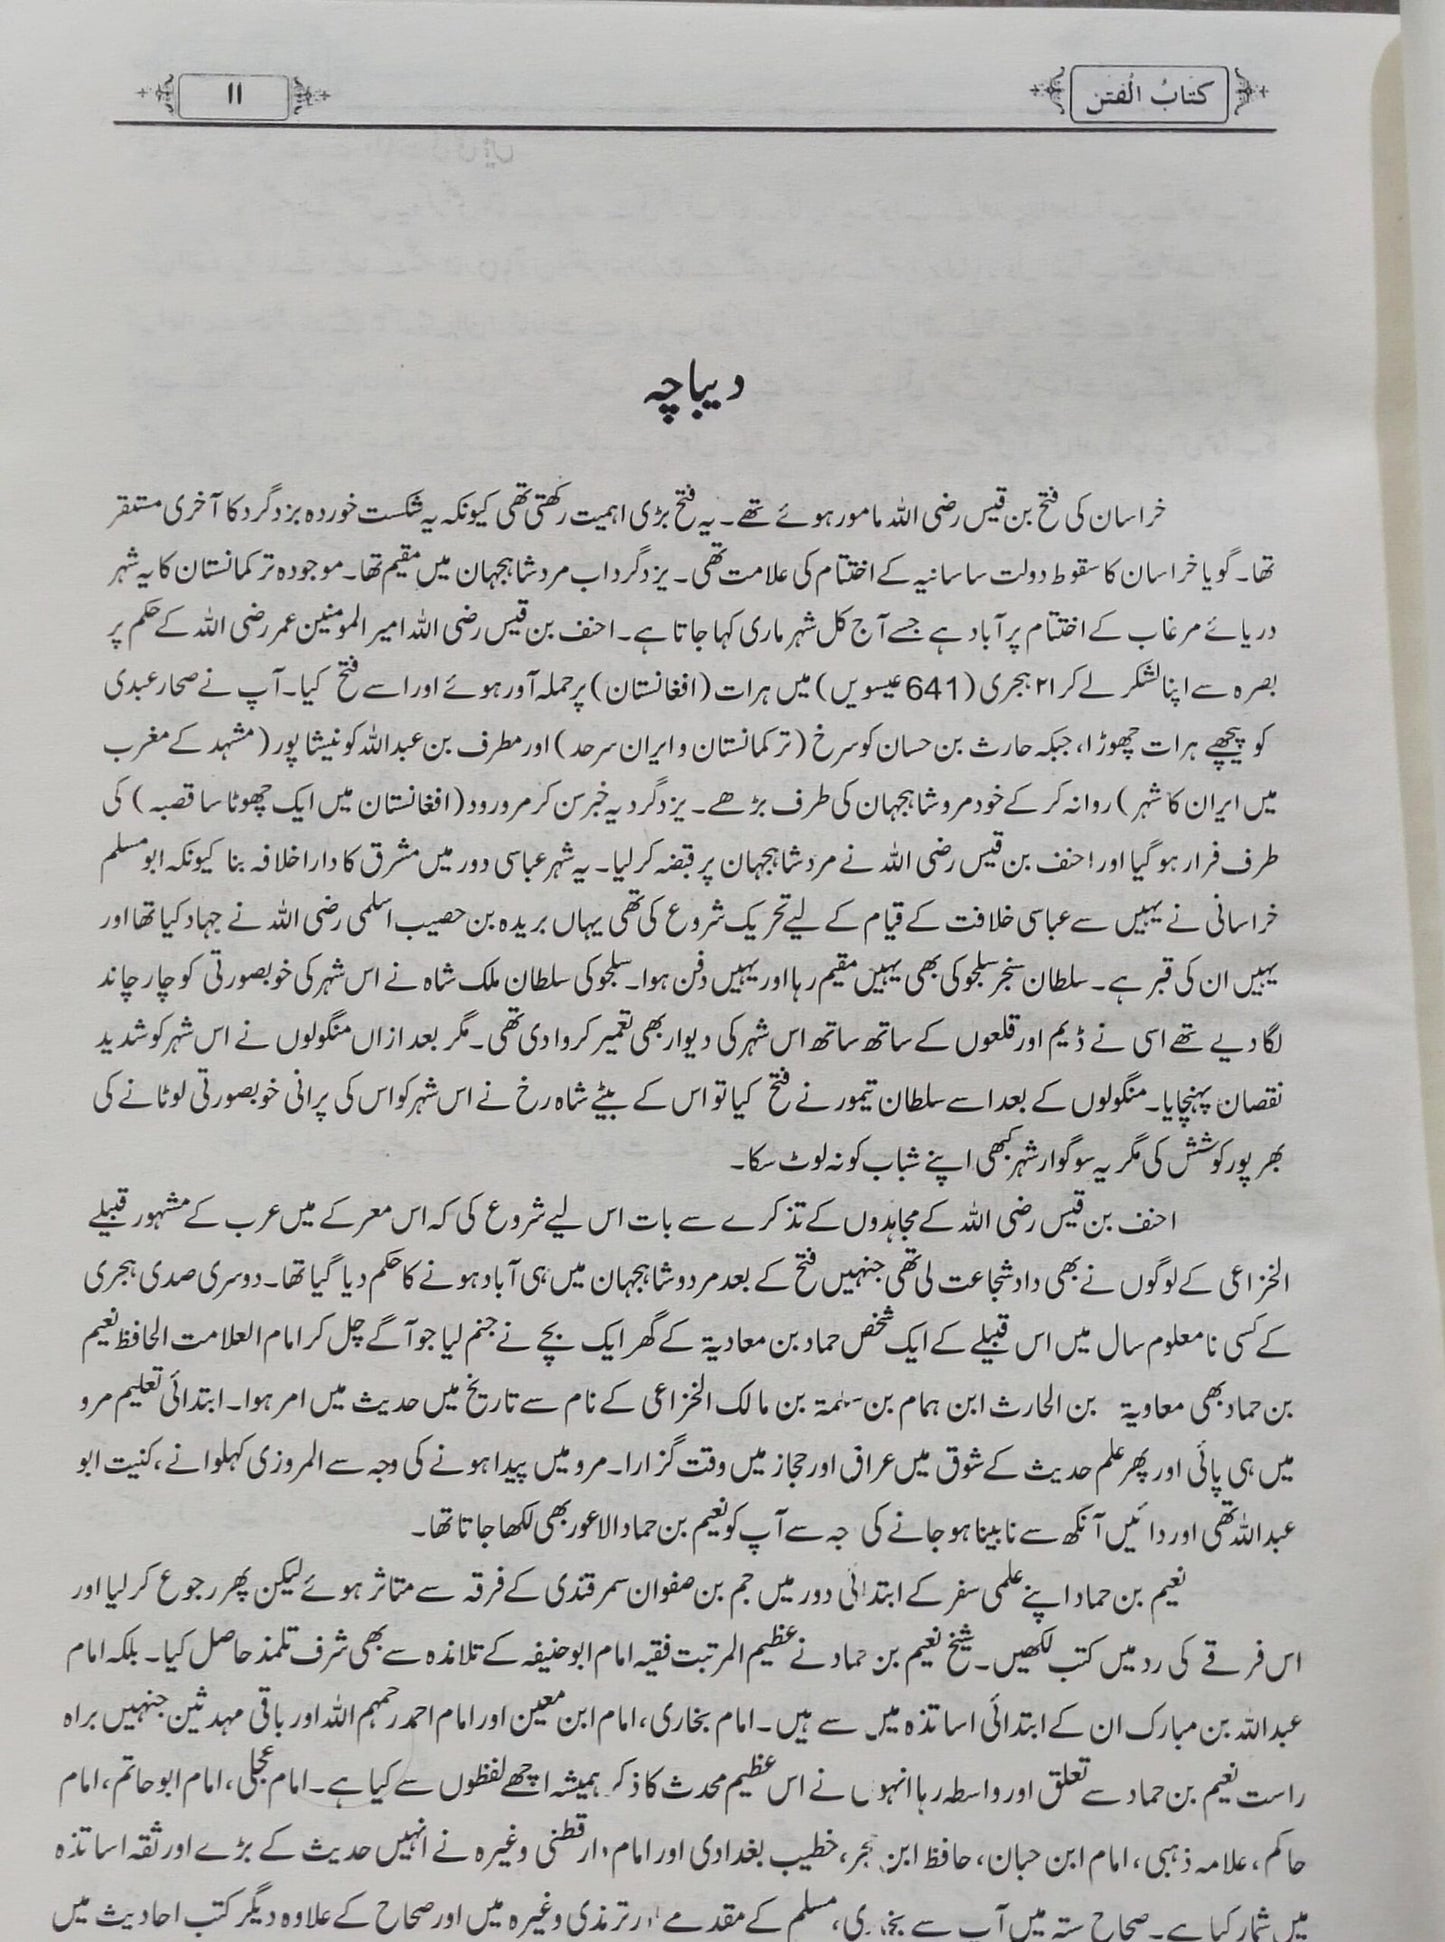 کتابُ الْفتن
۱۱
دیباچہ
خراسان کی فتح بن قیس رضی اللہ مامور ہوئے تھے۔ یہ فتح بڑی اہمیت رکھتی تھی کیونکہ یہ شکست خوردہ یزدگرد کا آخری مستقر
تھا۔ گویا خراسان کا سقوط دولت ساسانیہ کے اختتام کی علامت تھی۔ یزدگرد اب مرد شاہجہان میں مقیم تھا۔ موجودہ ترکمانستان کا یہ شہر
دریائے مرغاب کے اختتام پر آباد ہے جسے آج کل شہر ماری کہا جاتا ہے۔ احنف بن قیس رضی اللہ امیر المومنین عمر رضی اللہ کے حکم پر
بصرہ سے اپنا لشکر لے کر ۲۱ ہجری (641 عیسویں) میں ہرات (افغانستان) پر حملہ آور ہوئے اور اسے فتح کیا۔ آپ نے صحار عبدی
کو پیچھے ہرات چھوڑا، جبکہ حارث بن حسان کو سرخ (ترکمانستان و ایران سرحد) اور مطرف بن عبداللہ کو نیشاپور (مشہد کے مغرب
میں ایران کا شہر) روانہ کر کے خود مرو شاہجہان کی طرف بڑھے۔ یزدگرد یہ خبر سن کر مرورود (افغانستان میں ایک چھوٹا سا قصبہ) کی
طرف فرار ہو گیا اور احنف بن قیس رضی اللہ نے مرد شاہجہان پر قبضہ کر لیا۔ یہ شہر عباسی دور میں مشرق کا دار اخلافہ بنا کیونکہ ابو مسلم
خراسانی نے یہیں سے عباسی خلافت کے قیام کے لیے تحریک شروع کی تھی یہاں بریدہ بن حصیب اسلمی رضی اللہ نے جہاد کیا تھا اور
یہیں ان کی قبر ہے۔ سلطان سنجر سلجوکی بھی یہیں مقیم رہا اور یہیں دفن ہوا۔ سلجوکی سلطان ملک شاہ نے اس شہر کی خوبصورتی کو چار چاند
لگا دیے تھے اسی نے ڈیم اور قلعوں کے ساتھ ساتھ اس شہر کی دیوار بھی تعمیر کروا دی تھی۔ مگر بعد ازاں منگولوں نے اس شہر کو شدید
نقصان پہنچایا۔ منگولوں کے بعد اسے سلطان تیمور نے فتح کیا تو اس کے بیٹے شاہ رخ نے اس شہر کو اس کی پرانی خوبصورتی لوٹانے کی
بھر پور کوشش کی مگر یہ سوگوار شہر کبھی اپنے شباب کو نہ لوٹ سکا۔
احنف بن قیس رضی اللہ کے مجاہدوں کے تذکرے سے بات اس لیے شروع کی کہ اس معرکے میں عرب کے مشہور قبیلے
الخزاعی کے لوگوں نے بھی داد شجاعت لی تھی جنہیں فتح کے بعد مردو شاہجہان میں ہی آباد ہونے کا حکم دیا گیا تھا۔ دوسری صدی ہجری
کے کسی نا معلوم سال میں اس قبیلے کے ایک شخص حماد بن معادیۃ کے گھر ایک بچے نے جنم لیا جو آگے چل کر امام العلامت الحافظ نعیم
بن حماد بھی معاویۃ بن الحارث ابن ہمام بن سلمۃ بن مالک الخزاعی کے نام سے تاریخ میں حدیث میں امر ہوا۔ ابتدائی تعلیم مرو
میں ہی پائی اور پھر علم حدیث کے شوق میں عراق اور حجاز میں وقت گزارا۔ مرو میں پیدا ہونے کی وجہ سے المروزی کہلوانے، کنیت ابو
عبداللہ تھی اور دائیں آنکھ سے نابینا ہو جانے کی جہ سے آپ کو نعیم بن حماد الاعور بھی لکھا جاتا تھا۔
نعیم بن حماد اپنے علمی سفر کے ابتدائی دور میں جم بن صفوان سمرقندی کے فرقہ سے متاثر ہوئے لیکن پھر رجوع کر لیا اور
اس فرقے کی رد میں کتب لکھیں۔ شیخ نعیم بن حماد نے عظیم المرتبت فقیہ امام ابو حنیفہ کے تلامذہ سے بھی شرف تلمذ حاصل کیا۔ بلکہ امام
عبداللہ بن مبارک ان کے ابتدائی اساتذہ میں سے ہیں۔ امام بخاری، امام ابن معین اور امام احمد رحمہم اللہ اور باقی مہدثین جنہیں براہ
راست نعیم بن حماد سے تعلق اور واسطہ رہا انہوں نے اس عظیم محدث کا ذکر ہمیشہ اچھے لفظوں سے کیا ہے۔ امام عجلی، امام ابو حاتم، امام
حاکم، علامہ ذہبی، امام ابن حبان، حافظ ابن حجر، خطیب بغدادی اور امام دارقطنی وغیرہ نے انہیں حدیث کے بڑے اور ثقہ اساتذہ
میں شمار کیا ہے۔ صحاح ستہ میں آپ سے بخاری، مسلم کے مقدمے اور ترمذی وغیرہ میں اور صحاح کے علاوہ دیگر کتب احادیث میں